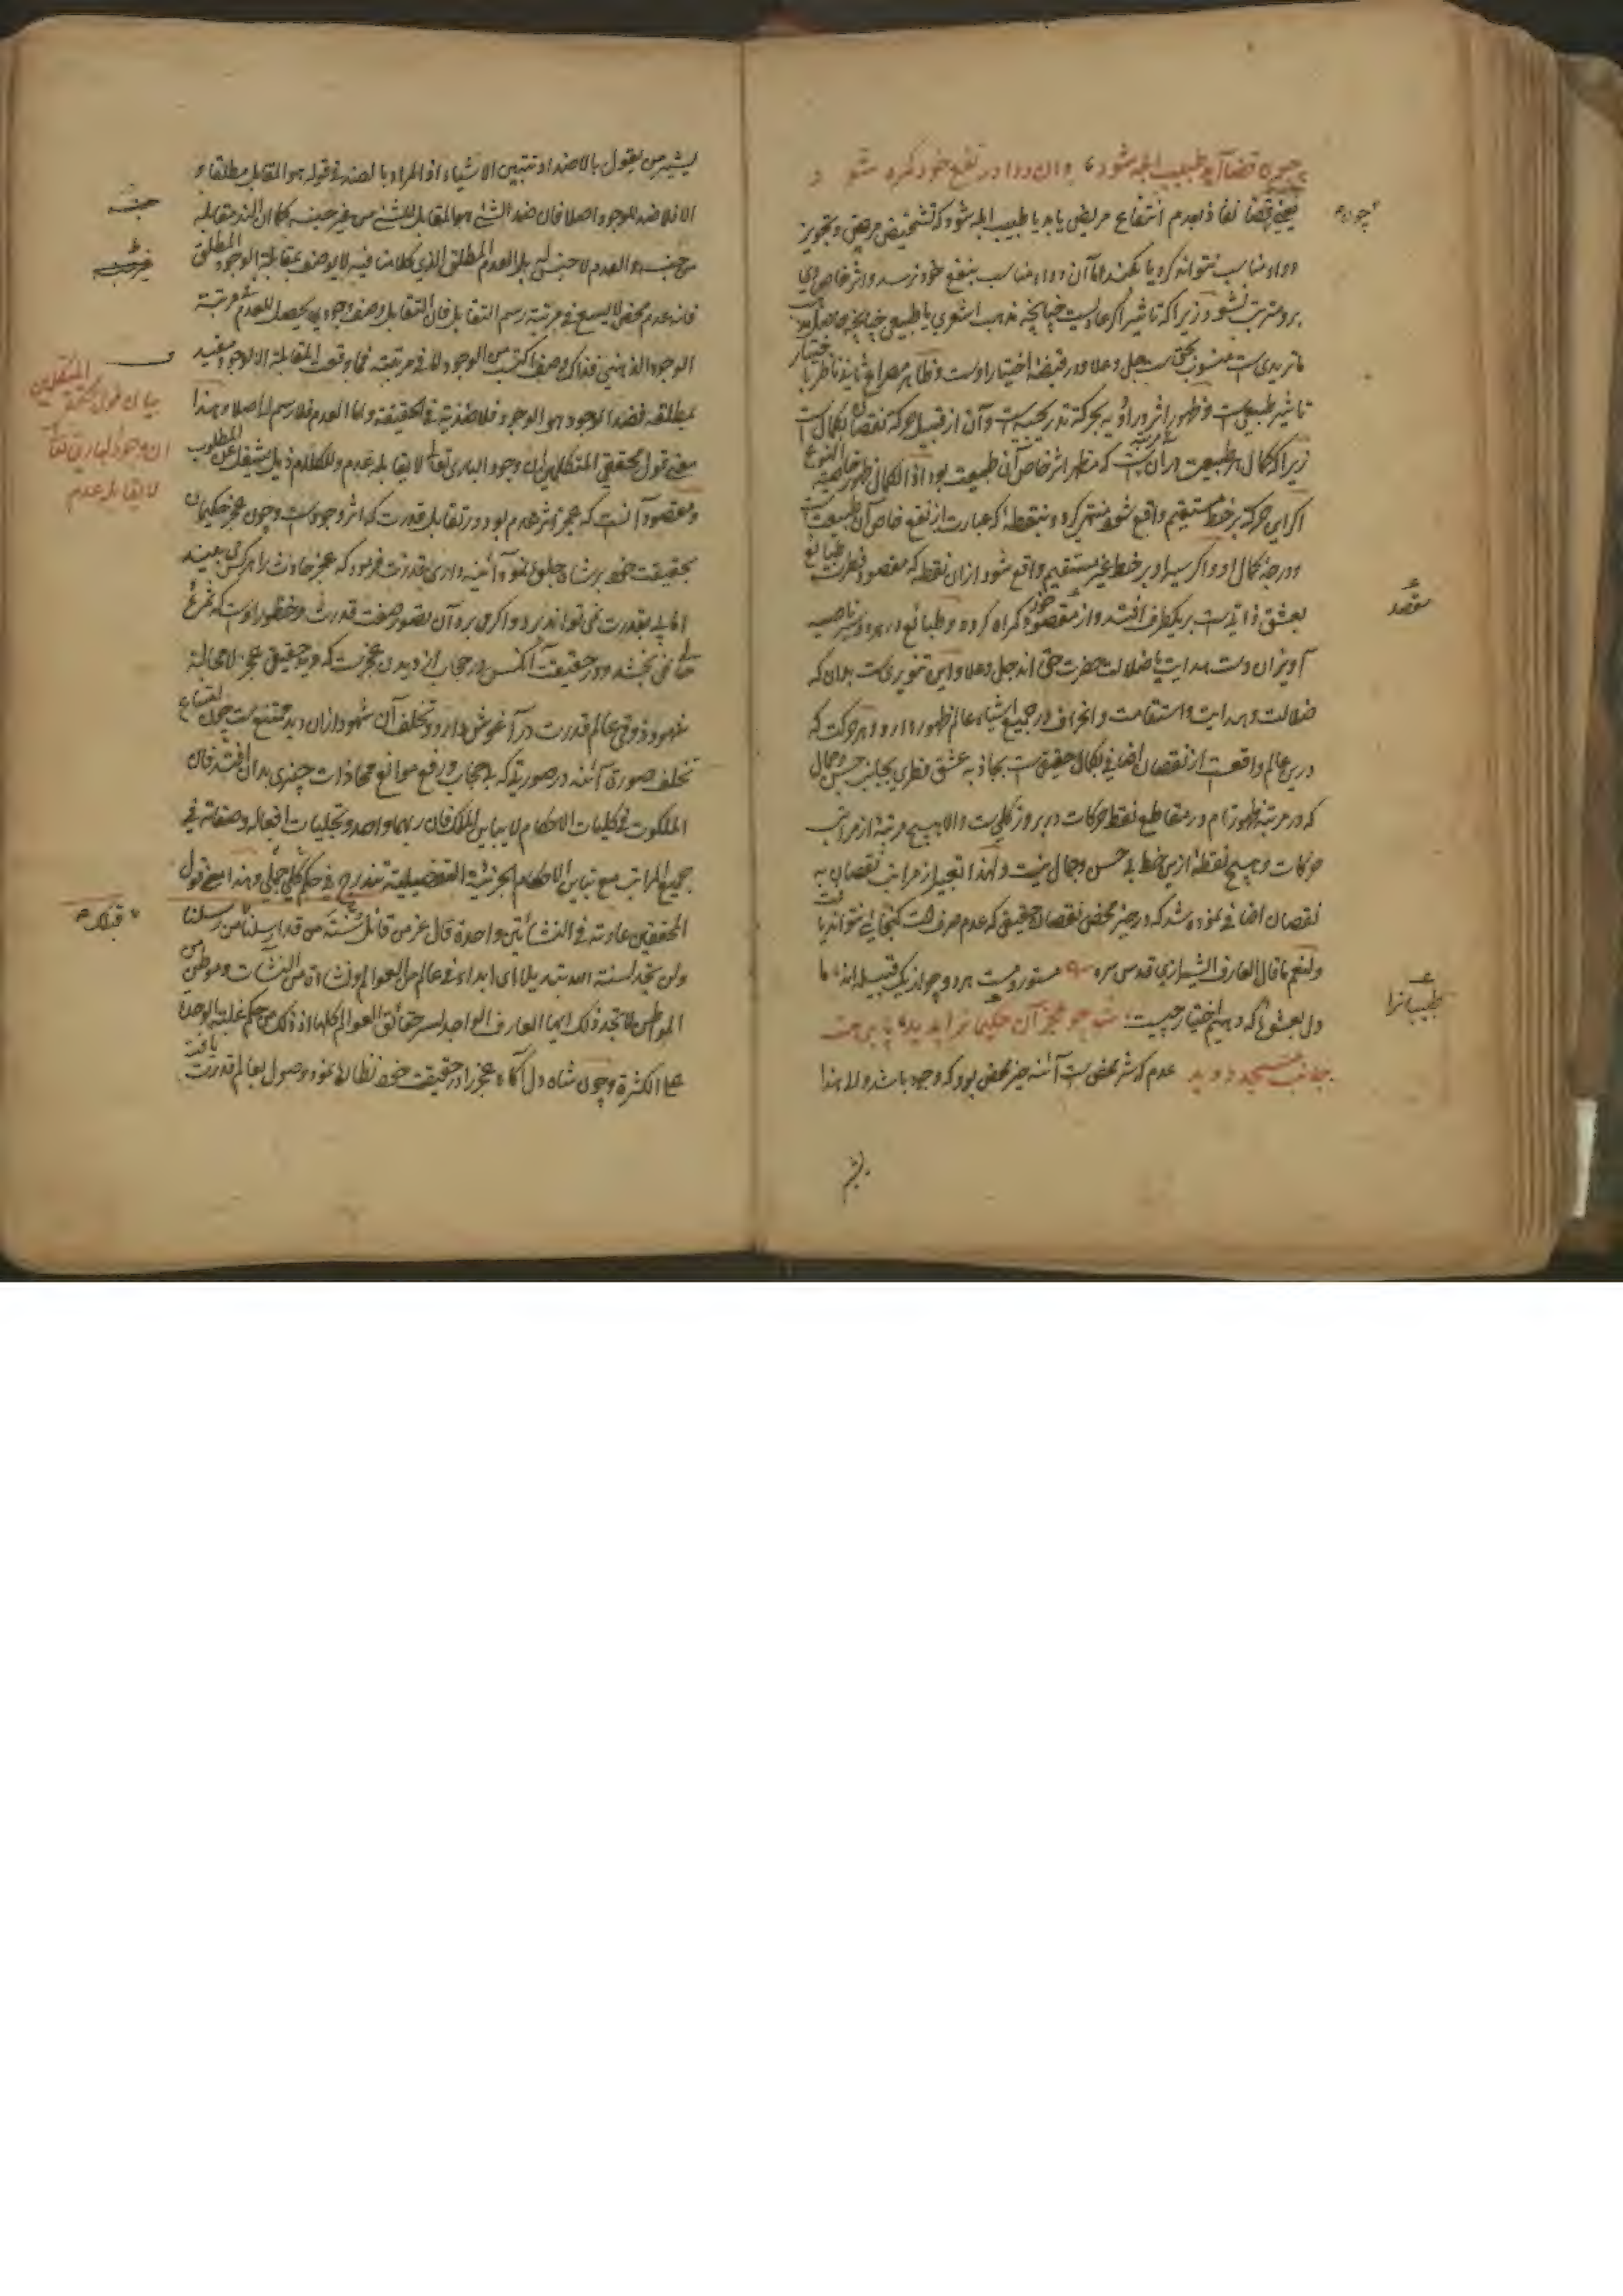 چون قضا آید طبیب ابله شود وان دوا در نفع خود گمره شود
یعنی چون قضا نفاذ بعدم انتفاع مریض یابد یا طبیب ابله شود که تشخیص مرض و تجویز
دواء مناسب نتواند کرد یا بکند اما آن دواء مناسب بنفع خود نرسد و اثر خاص وی
برو مترتب نشود زیرا که تاثیر اگر عادیست چنانچه مذهب اشعری یا طبیعی چنانچه
ماتریدی است منسوب بحق است جل وعلا و در قبضهٔ اختیار اوست و ظاهر مصراع ثانی ناظر با
تاثیر طبیعی است و ظهور اثر در ادویه بحرکت تدریجیه است و آن از قبیل حرکت نقصان بکمال است
زیرا که کمال هر طبیعت در آن مرتبه است که مظهر اثر خاص آن طبیعت بود اذ الکمال ظهور
اگر این حرکت بر خط مستقیم واقع شود منتهی گردد بنقطه که عبارت از نفع خاص آن طبیعت است
و درجهٔ کمال او و اگر سیر او بر خط غیر مستقیم واقع شود از آن نقطه که مقصود فطرت طبائع
بعشق ذاتی است بر یکطرف افتد و از مقصود خود گمراه گردد و طبائع در هر دو سیر ناصیه
آویزان دست هدایت یا ضلالت حضرت حق اند جل وعلا و این تنویری است بدان که
ضلالت و هدایت و استقامت و انحراف در جمیع اشیاء عالم ظهور دارد و هر حرکت که
درین عالم واقعست از نقصان اضافی بکمال حقیقی است بجاذبه عشق فطری بجانب حسن و جمال
که در مرتبهٔ ظهور تام در مقاطع نقط حرکات در بروز کلی است والا هیچ مرتبهٔ از مراتب
حرکات و هیچ نقطهٔ ازین خط بی حسن و جمال نیست و لهذا تعبیر از مراتب نقصان به
نقصان اضافی نموده شد که در حیز محض نقصان حقیقی که عدم صرف است گنجایی نتواند یافت
ولنعم ما قال العارف الشیرازی قدس سره مستور و مست هر دو چو از یک قبیله اند ما
دل بعشوهٔ که دهیم اختیار چیست شه چو عجز آن حکیمانرا بدید پا برهنه
جانب مسجد دوید عدم که شر محض است آئنه خیر محض بود که وجود باشد و الی هذا
یشیر
چون
مقصد
طبیبانرا
یشیر من یقول بالاضداد تتبین الاشیاء اذ المراد بالضد فی قوله هو المقابل مطلقا
الا فلا ضد للوجود اصلا فان ضد الشئ هو المقابل للشئ من غیر جنسه کما ان الند مقابله
من جنسه و العدم لا جنس له بل العدم المطلق الذی کلامنا فیه لا یوصف بمقابلة الوجود المطلق
فانه عدم محض لا یسع فی مرتبة رسم التقابل فان التقابل وصف وجودی یحصل للعدم فی مرتبة
الوجود الذهنی فذاک وصف اکتسب من الوجود
بمطلقه فضد الوجود هو الوجود فلا ضدیة فی الحقیقة و اما العدم فلا رسم له اصلا و هذا
معنی قول محققی المتکلمین ان وجود الباری تعالی لا یقابله عدم و للکلام ذیل یشغل عن المطلوب
و مقصود آنست که عجز اثر عدم بود در تقابل قدرت که اثر وجود است و چون عجز حکیمان
بحقیقت خود بر شاه جلوه نمود آئینه داری قدرت فرمود که عجز حادث را هر کس بیند
اما پی بقدرت نمی تواند برد و اگر می برد آن تصور صفت قدرت و حظور اوست که نفع
حالی نمی بخشد و در حقیقت آنکس در حجاب از دیدن عجزست که دید حقیقی عجز لا محاله
شهود ذوقی عالم قدرت در آغوش دارد و تخلف آن شهود ازان دید ممتنع است چون امتناع
تخلف صوری آئنه در صورتی که بی حجاب و رفع موانع محاذات چیزی بدان افتد فان
الملکوت فی کلیات الاحکام لا یباین الملک فان ربهما واحد و تجلیات افعاله و صفاته فی
جمیع المراتب مع تباین الاحکام الجزئیة التفصیلیة تندرج فی حکم کلی جملی و هذا معنی قول
المحققین عادته فی النشأتین واحدة قال عز من قائل سنة من قد ارسلنا قبلک من رسلنا
ولن تجد لسنة الله تبدیلا ای ابدا فی عالم من العوالم و نشاة من النشآت و موطن من
المواطن لا تجد ذلک ایها العارف الواجد لسر حقائق العوالم کلها اذ ذلک من حکم غلبة الوحدة
علی الکثرة و چون شاه دل آگاه عجز را در حقیقت خود نظاره نمود وصول بعالم قدرت یافت
جنسه
غیر جنسه
بیان قول محققی المتکلمین
ان وجود الباری تعالی
لا یقابله عدم
قبلک